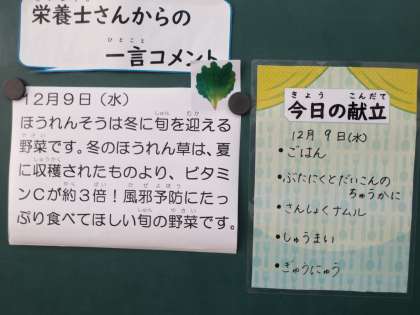 栄養士さんからの
一言コメント
12月9日(水)
ほうれんそうは冬に旬を迎える
野菜です。冬のほうれん草は、夏
に収穫されたものより、ビタミ
ンCが約3倍!風邪予防にたっ
ぷり食べてほしい旬の野菜です。
今日の献立
12月9日(水)
•ごはん
•ぶたにくとだいこんの
ちゅうかに
•さんしょくナムル
•しゅうまい
•ぎゅうにゅう